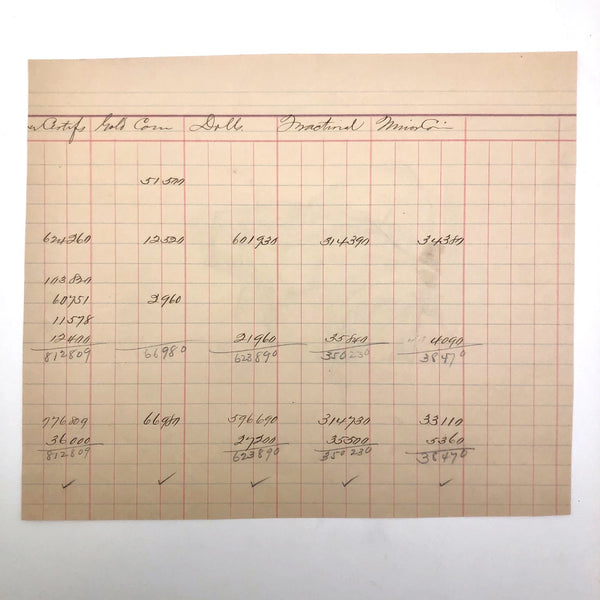 er Certifs Gold Coin Dolls. Fractional Minor Coin
51500
624260 12520 601930 314390 34380
103820
60751 2960
11578
12400 21960 35840 4090
812809 66980 623890 350230 38470
776809 66980 596690 314730 33110
36000 27200 35500 5360
812809 623890 350230 38470
✓ ✓ ✓ ✓